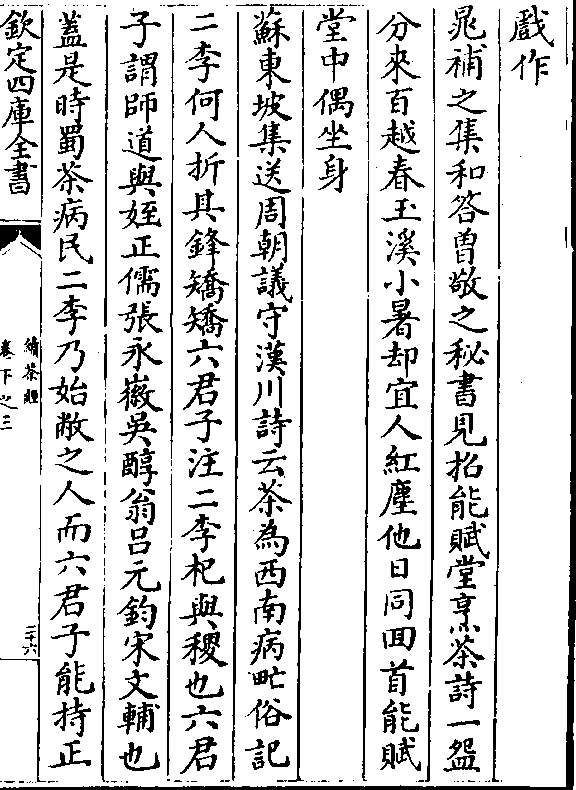 戲作
晁補之集和答曽敬之秘書見招能賦堂烹茶詩一盌
分來百越春玉溪小暑却宜人紅塵他日同回首能賦
堂中偶坐身
蘇東坡集送周朝議守漢川詩云茶為西南病甿俗記
二李何人折其鋒矯矯六君子注二李杞與稷也六君
子謂師道與姪正儒張永徽吳醇翁吕元鈞宋文輔也
葢是時蜀茶病民二李乃始敝之人而六君子能持正
欽定四庫全書
續茶經
卷下之三
三十六